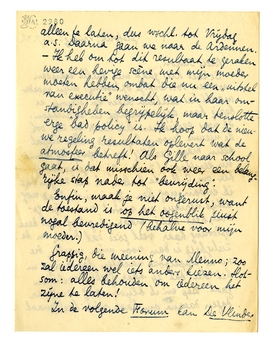 alleen te laten, dus wacht tot Vrijdag
a.s. Daarna gaan we naar de Ardennen.
- Ik heb om tot dit resultaat te geraken
weer een hevige scène met mijn moeder
moeten hebben, omdat die nu een „uitstel
van executie" wenscht, wat in haar om-
standigheden begrijpelijk, maar tenslotte
erge bad policy is. Ik hoop dat de nieu-
we regeling resultaten oplevert wat de
atmosfeer betreft! Als Gille naar school
gaat, is dat misschien ook weer een belang-
rijke stap nader tot "bevrijding".
Enfin, maak je niet ongerust, want
de toestand is op het oogenblik juist
nogal bevredigend (behalve voor mijn
moeder.)
Grappig, die meening van Menno; zoo
zal iedereen wel iets anders kiezen. Slot-
som: alles behouden om iedereen het
zijne te laten!
In de volgende Forum kan De Vlinder